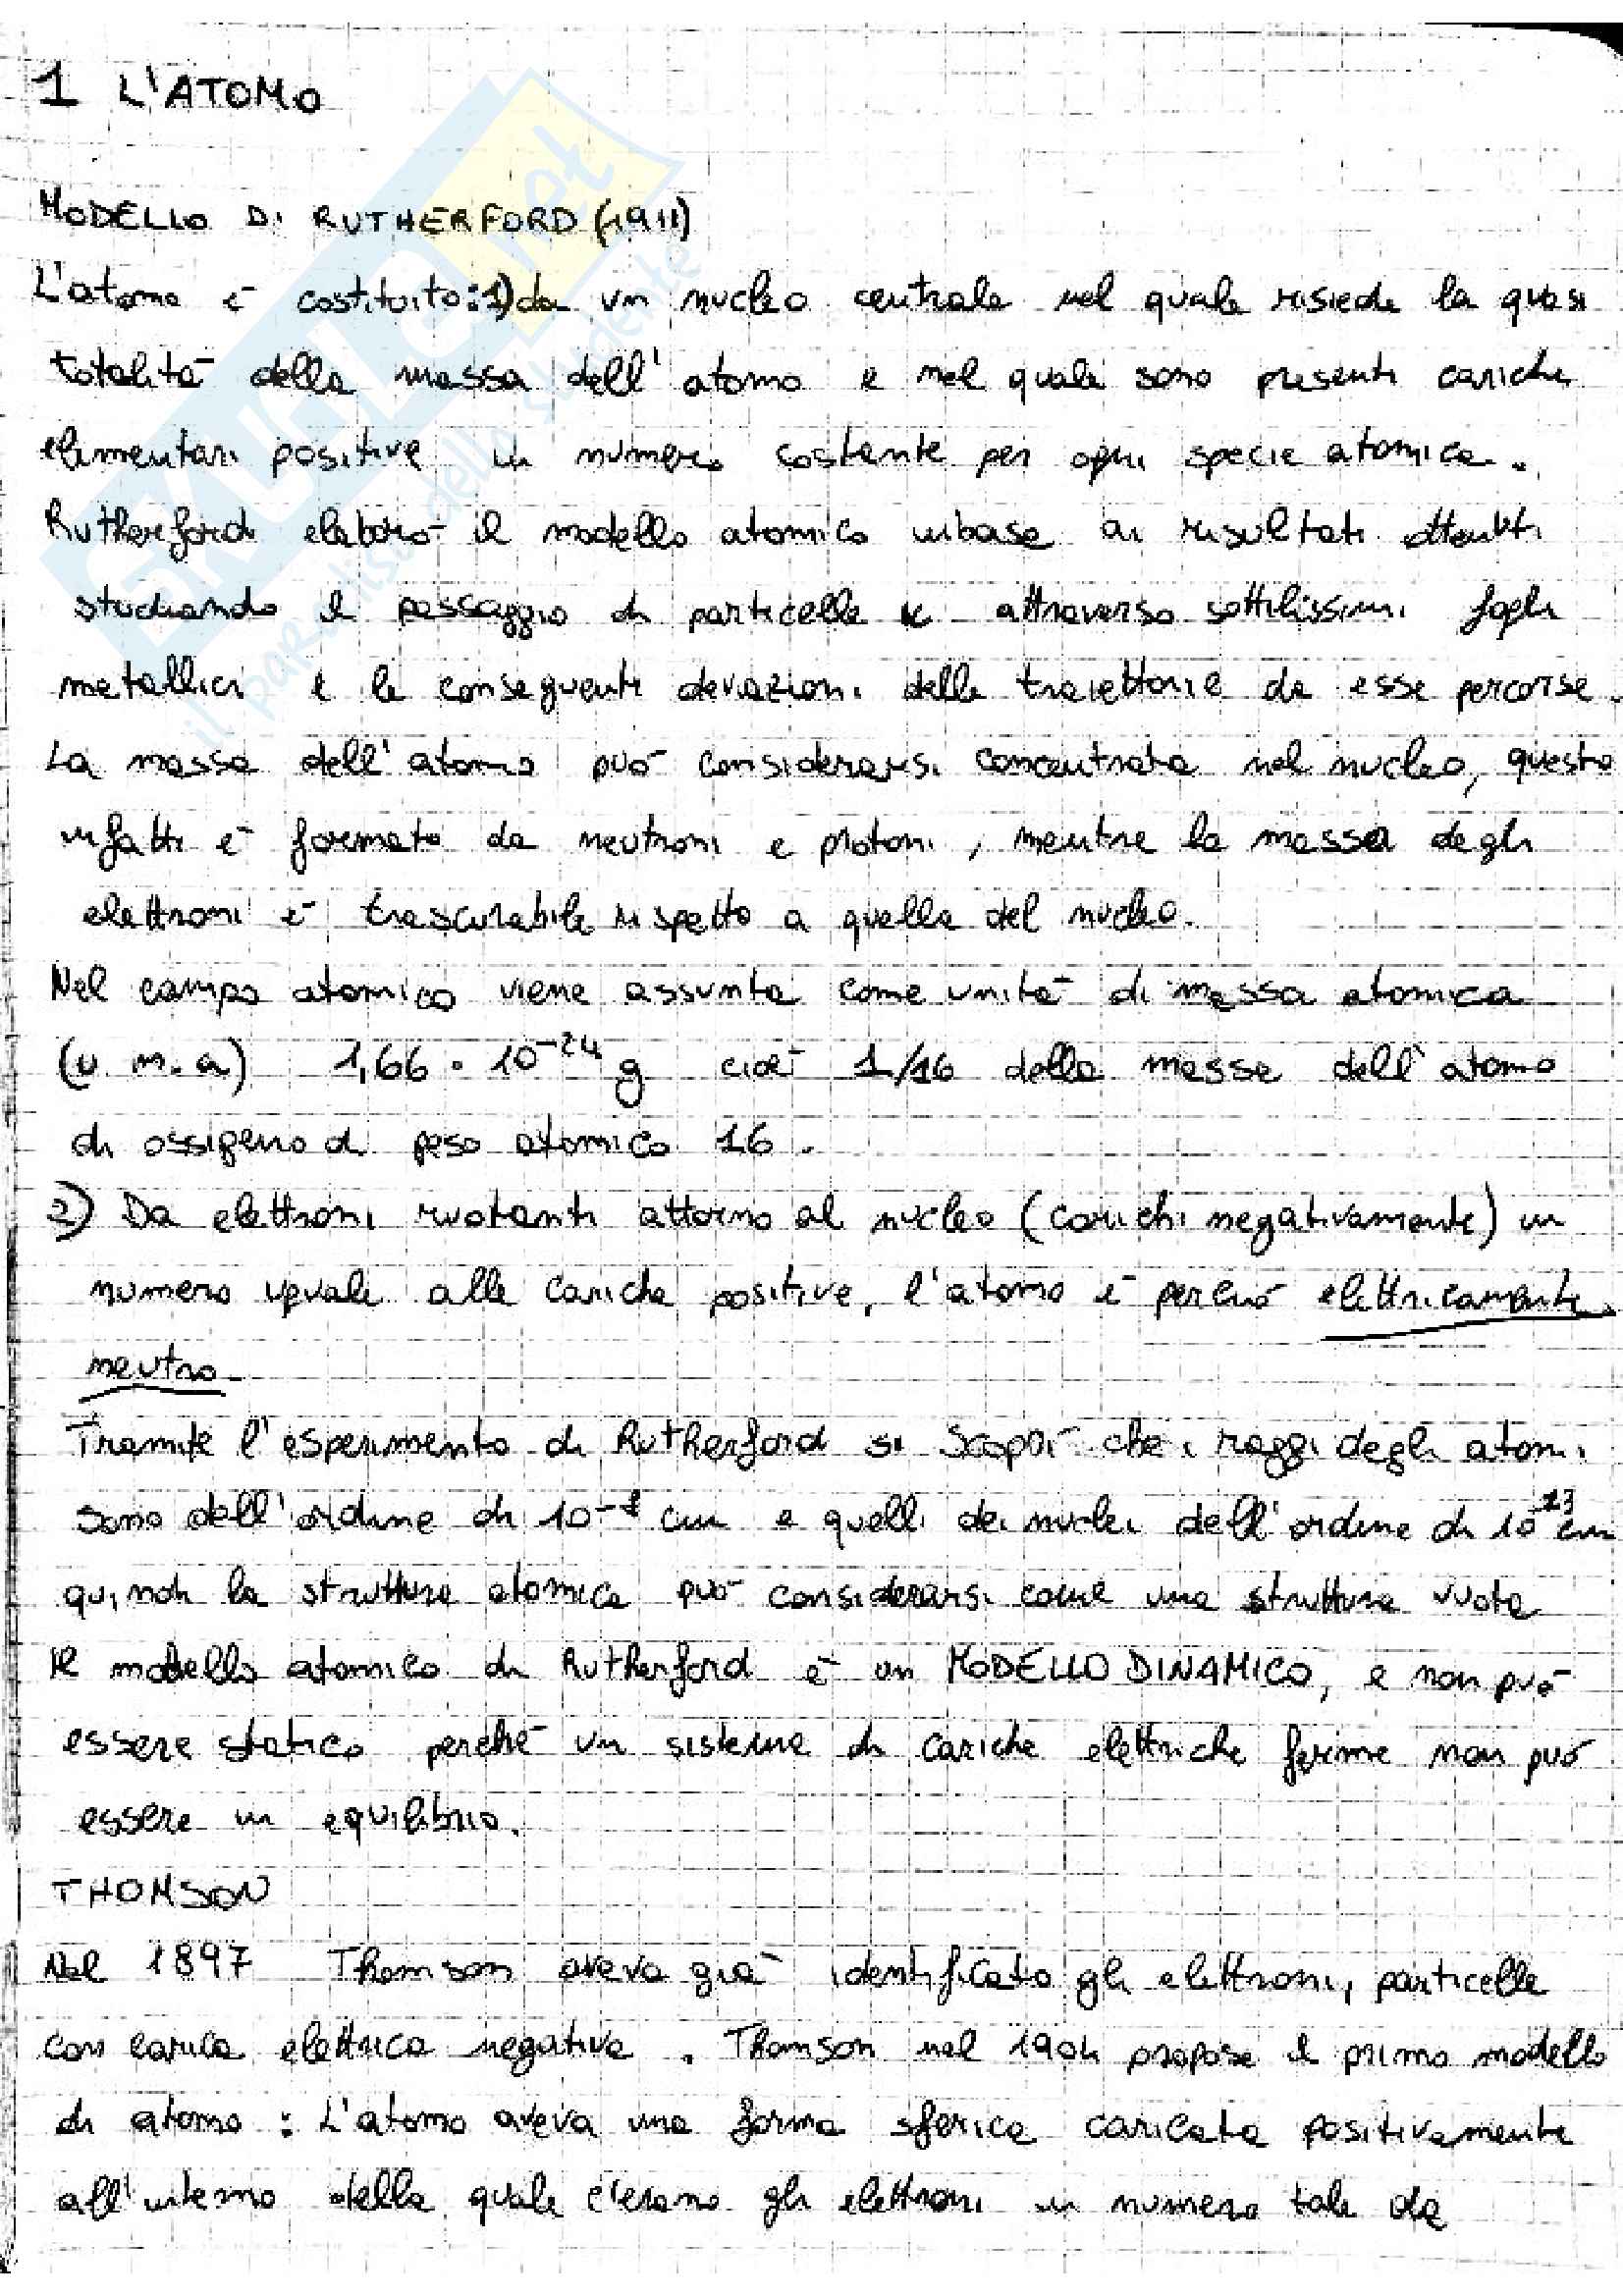 1 L'ATOMO
MODELLO DI RUTHERFORD (1911)
L'atomo è costituito: 1) da un nucleo centrale nel quale risiede la quasi
totalità della massa dell'atomo e nel quale sono presenti cariche
elementari positive in numero costante per ogni specie atomica.
Rutherford elaborò il modello atomico in base ai risultati ottenuti
studiando il passaggio di particelle α attraverso sottilissimi fogli
metallici e le conseguenti deviazioni delle traiettorie da esse percorse.
La massa dell'atomo può considerarsi concentrata nel nucleo, questo
infatti è formato da neutroni e protoni, mentre la massa degli
elettroni è trascurabile rispetto a quella del nucleo.
Nel campo atomico viene assunta come unità di massa atomica
(u.m.a) 1,66 · 10⁻²⁴ g cioè 1/16 della massa dell'atomo
di ossigeno di peso atomico 16.
2) Da elettroni ruotanti attorno al nucleo (carichi negativamente) in
numero uguale alle cariche positive, l'atomo è perciò elettricamente
neutro.
Tramite l'esperimento di Rutherford si scoprì che i raggi degli atomi
sono dell'ordine di 10⁻⁸ cm e quelli dei nuclei dell'ordine di 10⁻¹³ cm
quindi la struttura atomica può considerarsi come una struttura vuota
Il modello atomico di Rutherford è un MODELLO DINAMICO, e non può
essere statico perché un sistema di cariche elettriche ferme non può
essere in equilibrio.
THOMSON
Nel 1897 Thomson aveva già identificato gli elettroni, particelle
con carica elettrica negativa. Thomson nel 1904 propose il primo modello
di atomo: L'atomo aveva una forma sferica caricata positivamente
all'interno della quale c'erano gli elettroni in numero tale da
SKUOLA.net
il paradiso dello studente